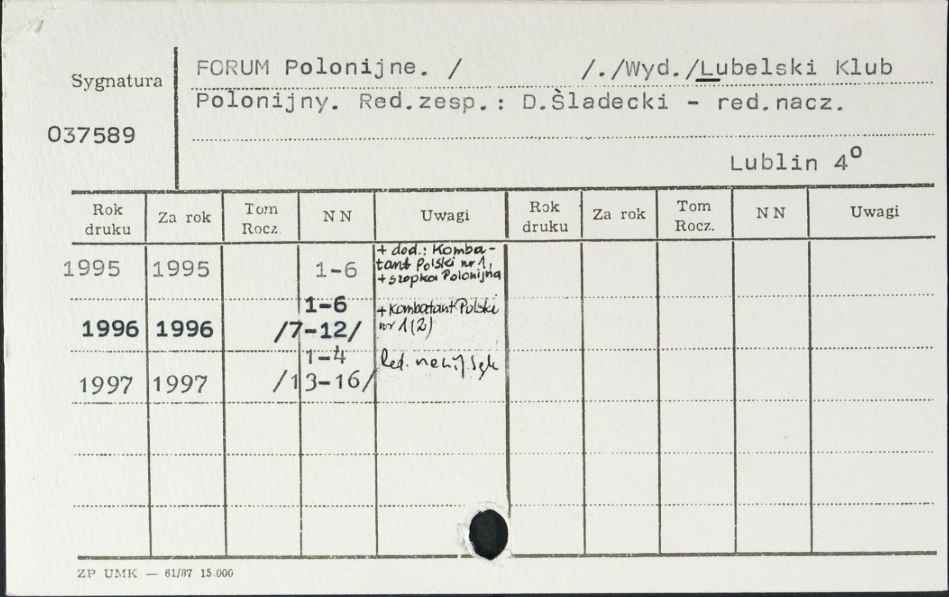 FORUM Polonijne. / /./Wyd./Lubelski Klub
Sygnatura
Polonijny. Red.zesp.: D.Śladecki - red.nacz.
037589
Lublin 4⁰
Rok druku Za rok Tom Rocz. N N Uwagi Rok druku Za rok Tom Rocz. N N Uwagi
1995 1995 1-6 + dod.: Komba-
tant Polski nr 1,
+ szopka Polonijna
1-6 + Kombatant Polski
1996 1996 /7-12/ nr 1(2)
1-4 Red. nacz.
1997 1997 /13-16/
ZP UMK — 61/87 15.000